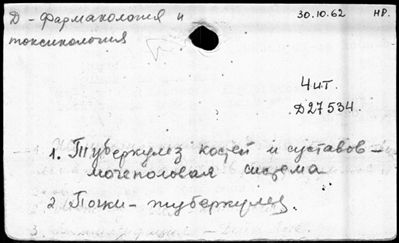 Д - фармакология и
токсикология
30.10.62 НР.
Чит.
Д27534.
1. Туберкулез костей и суставов -
мочеполовая система
2. Почки - туберкулез.